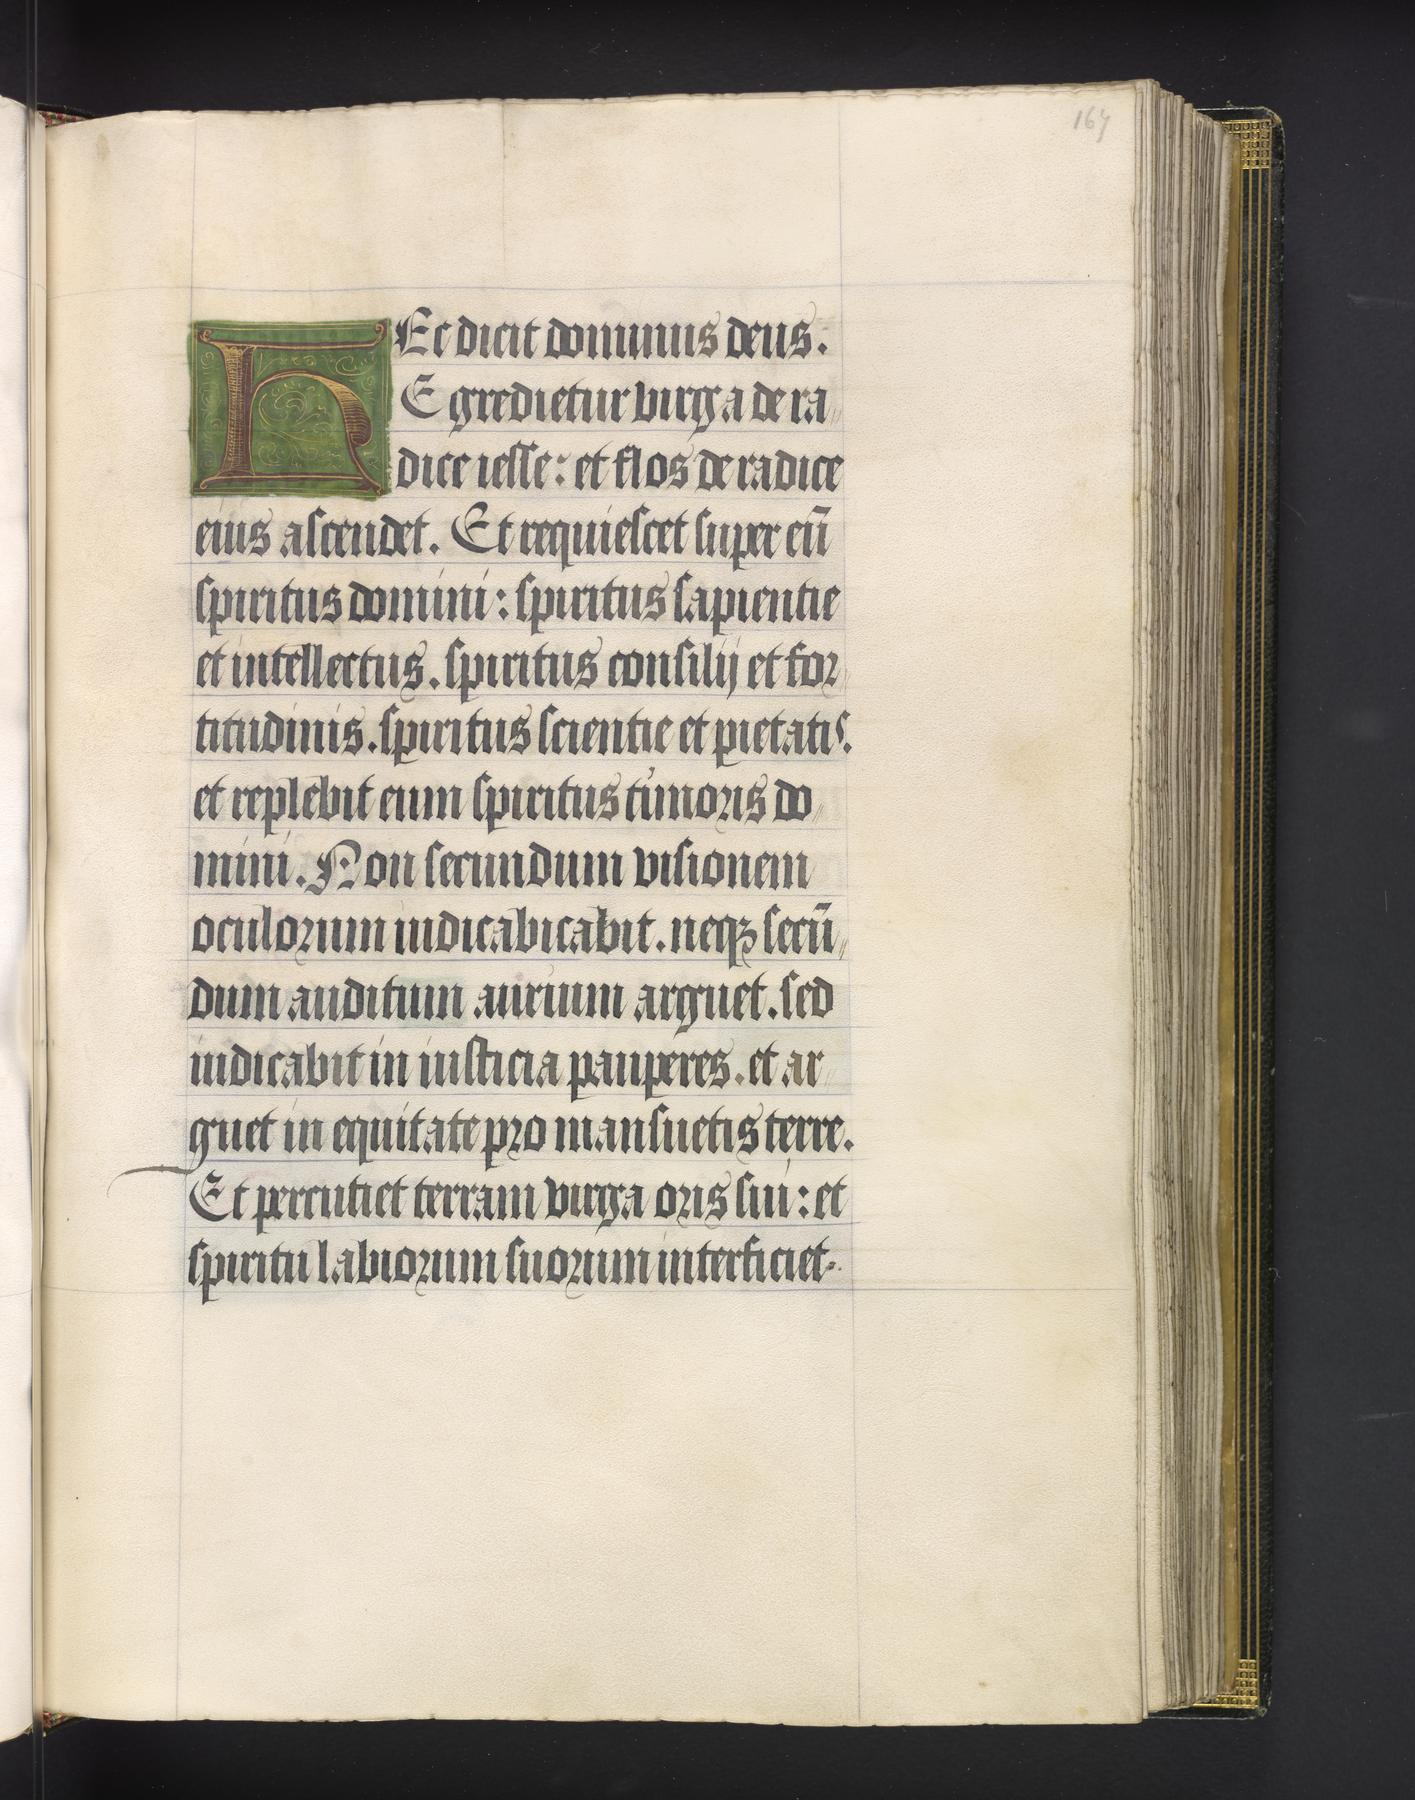 167
HEc dicit dominus deus.
Egredietur virga de ra„
dice iesse: et flos de radice
eius ascendet. Et requiescet super eū
spiritus domini: spiritus sapientie
et intellectus. spiritus consilij et for
titudinis. spiritus scientie et pietatis.
et replebit eum spiritus timoris do„
mini. Non secundum visionem
oculorum iudicabicabit. neqꝫ secū„
dum auditum aurium arguet. sed
iudicabit in iusticia pauperes. et ar„
guet in equitate pro mansuetis terre.
Et percutiet terram virga oris sui: et
spiritu labiorum suorum interficiet.